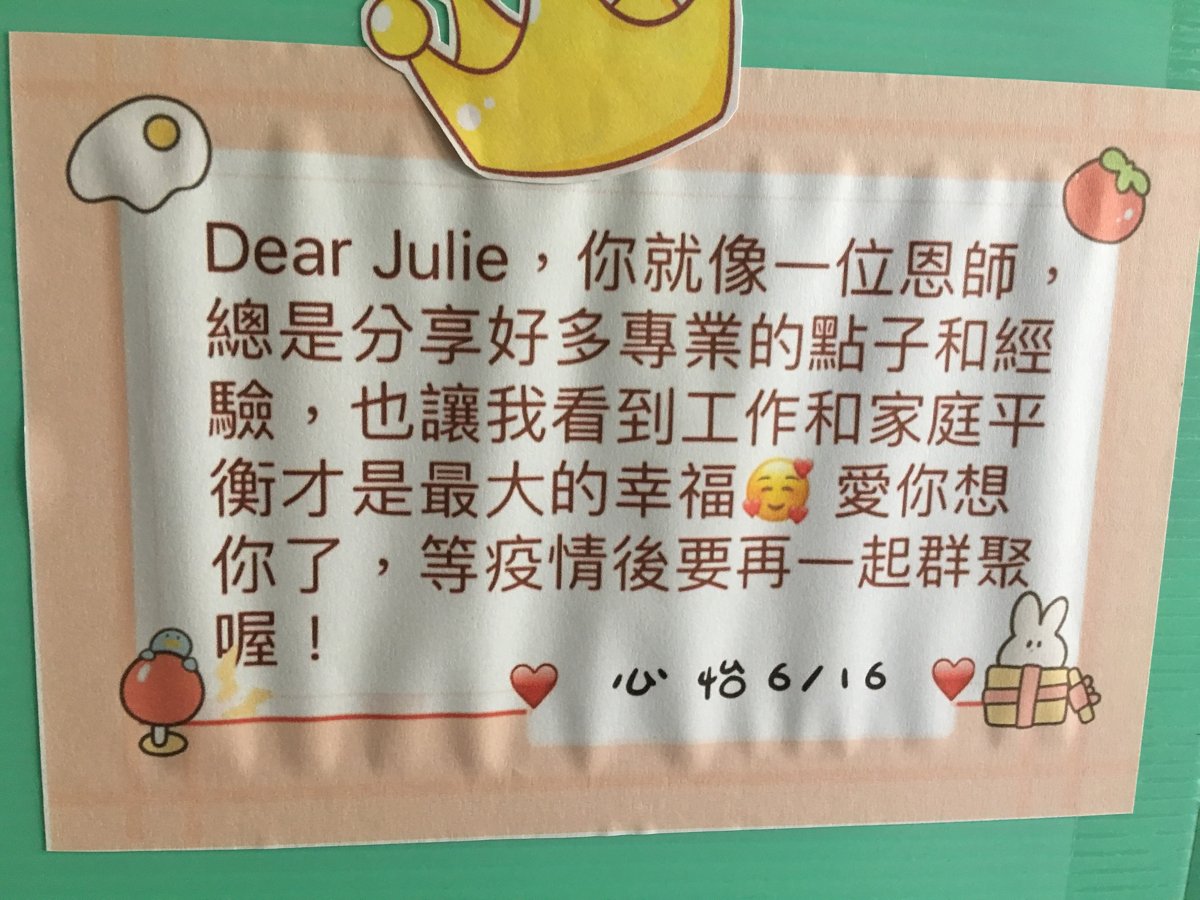 Dear Julie，你就像一位恩師，
總是分享好多專業的點子和經
驗，也讓我看到工作和家庭平
衡才是最大的幸福🥰 愛你想
你了，等疫情後要再一起群聚
喔！
心怡6/16